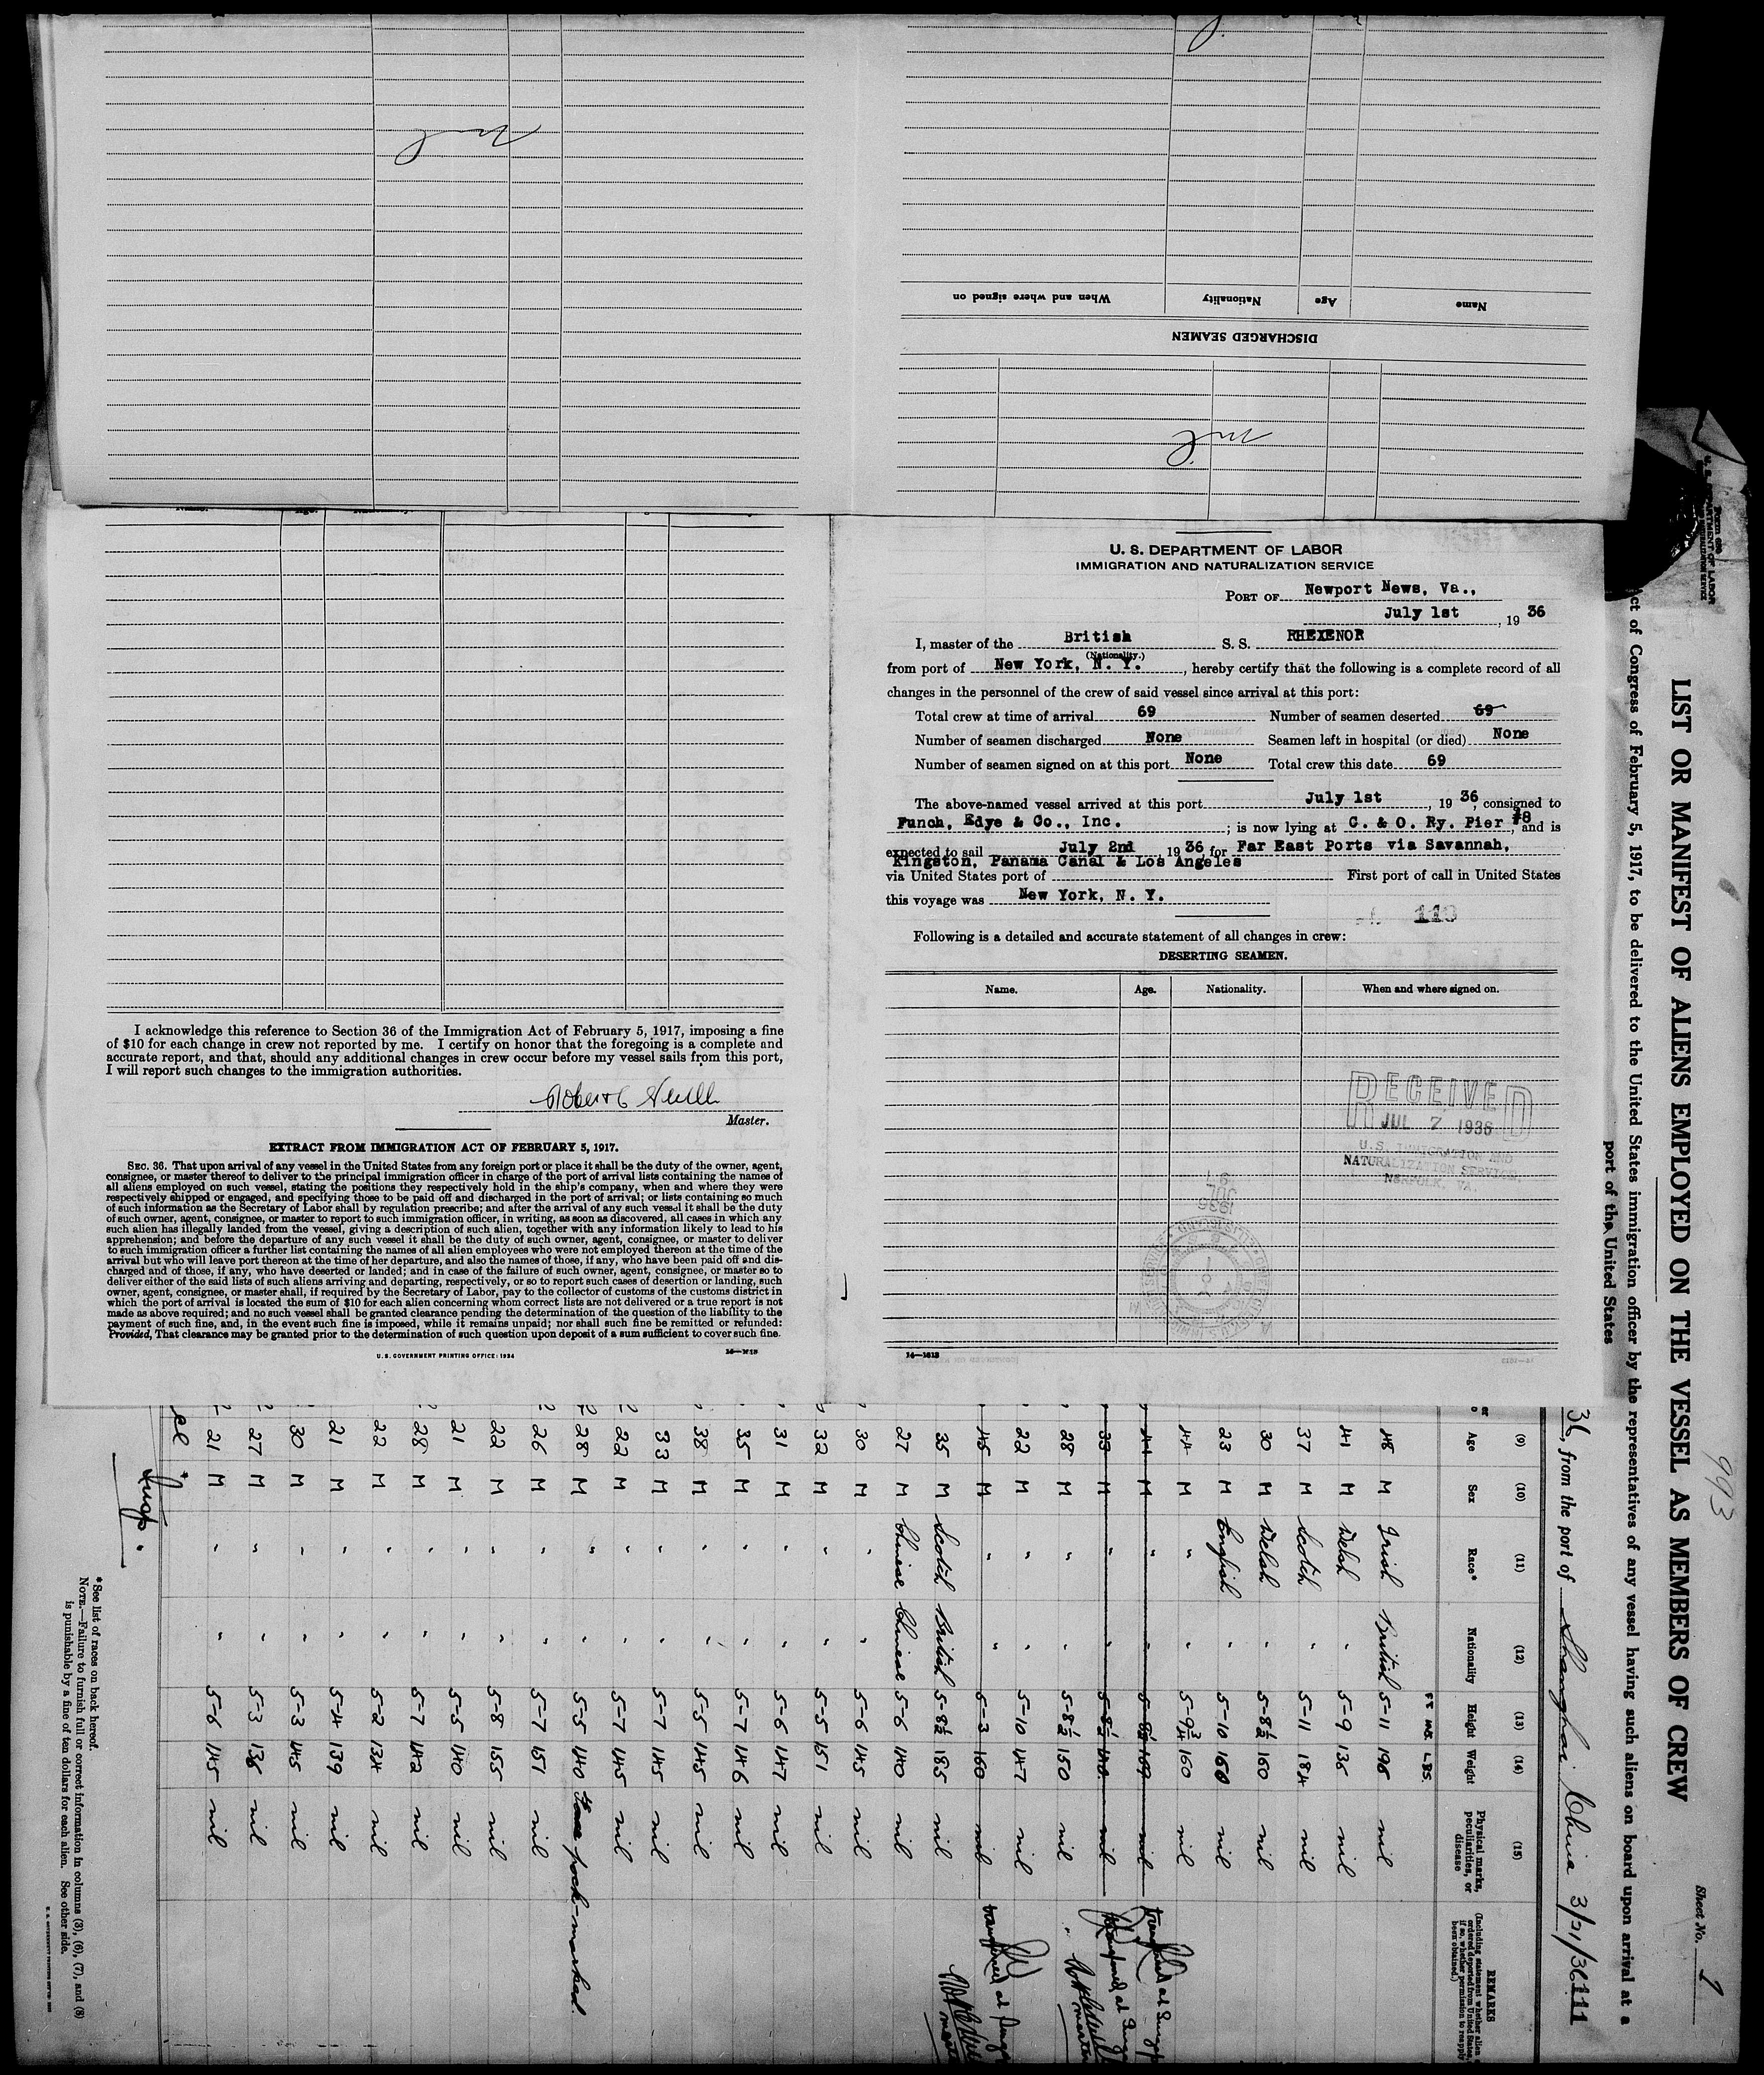 nil
When and where signed on Nationality Age Name
DISCHARGED SEAMEN
nil
U. S. DEPARTMENT OF LABOR
IMMIGRATION AND NATURALIZATION SERVICE
PORT OF Newport News, Va.,
July 1st, 19 36
I, master of the British S. S. RHEXENOR
(Nationality.)
from port of New York, N. Y., hereby certify that the following is a complete record of all
changes in the personnel of the crew of said vessel since arrival at this port:
Total crew at time of arrival 69 Number of seamen deserted 69
Number of seamen discharged None Seamen left in hospital (or died) None
Number of seamen signed on at this port None Total crew this date 69
The above-named vessel arrived at this port July 1st, 19 36, consigned to
Funch, Edye & Co., Inc. ; is now lying at C. & O. Ry. Pier #8, and is
expected to sail July 2nd 19 36 for Far East Ports via Savannah,
Kingston, Panama Canal & Los Angeles
via United States port of First port of call in United States
this voyage was New York, N. Y.
113
Following is a detailed and accurate statement of all changes in crew:
DESERTING SEAMEN.
Name. Age. Nationality. When and where signed on.
RECEIVED
JUL 7 1936
U.S. IMMIGRATION AND
NATURALIZATION SERVICE,
NORFOLK, VA.
14—1613
I acknowledge this reference to Section 36 of the Immigration Act of February 5, 1917, imposing a fine
of $10 for each change in crew not reported by me. I certify on honor that the foregoing is a complete and
accurate report, and that, should any additional changes in crew occur before my vessel sails from this port,
I will report such changes to the immigration authorities.
Master.
EXTRACT FROM IMMIGRATION ACT OF FEBRUARY 5, 1917.
SEC. 36. That upon arrival of any vessel in the United States from any foreign port or place it shall be the duty of the owner, agent,
consignee, or master thereof to deliver to the principal immigration officer in charge of the port of arrival lists containing the names of
all aliens employed on such vessel, stating the positions they respectively hold in the ship's company, when and where they were
respectively shipped or engaged, and specifying those to be paid off and discharged in the port of arrival; or lists containing so much
of such information as the Secretary of Labor shall by regulation prescribe; and after the arrival of any such vessel it shall be the duty
of such owner, agent, consignee, or master to report to such immigration officer, in writing, as soon as discovered, all cases in which any
such alien has illegally landed from the vessel, giving a description of such alien, together with any information likely to lead to his
apprehension; and before the departure of any such vessel it shall be the duty of such owner, agent, consignee, or master to deliver
to such immigration officer a further list containing the names of all alien employees who were not employed thereon at the time of the
arrival but who will leave port thereon at the time of her departure, and also the names of those, if any, who have been paid off and dis-
charged and of those, if any, who have deserted or landed; and in case of the failure of such owner, agent, consignee, or master so to
deliver either of the said lists of such aliens arriving and departing, respectively, or so to report such cases of desertion or landing, such
owner, agent, consignee, or master shall, if required by the Secretary of Labor, pay to the collector of customs of the customs district in
which the port of arrival is located the sum of $10 for each alien concerning whom correct lists are not delivered or a true report is not
made as above required; and no such vessel shall be granted clearance pending the determination of the question of the liability to the
payment of such fine, and, in the event such fine is imposed, while it remains unpaid; nor shall such fine be remitted or refunded:
Provided, That clearance may be granted prior to the determination of such question upon deposit of a sum sufficient to cover such fine.
U. S. GOVERNMENT PRINTING OFFICE: 1934
993
Sheet No. 1
LIST OR MANIFEST OF ALIENS EMPLOYED ON THE VESSEL AS MEMBERS OF CREW
Act of Congress of February 5, 1917, to be delivered to the United States immigration officer by the representatives of any vessel having such aliens on board upon arrival at a
port of the United States
36, from the port of Shanghai China
(9) (10) (11) (12) (13) (14) (15)
Age Sex Race* Nationality Height Weight Physical marks, peculiarities, or disease REMARKS
(Including statement whether alien ordered deported from United States, if so, whether permission to reapply been obtained.)
FT INS. LBS.
48 M Irish British 5-11 196 nil
41 M Welsh " 5-9 136 nil
37 M Scotch " 5-11 184 nil
30 M Welsh " 5-8½ 160 nil
23 M English " 5-10 160 nil
44 M " " 5-9¾ 160 nil
44 M " " nil
33 M " " 5-8½ 140 nil
28 M " " 5-8½ 150 nil
22 M " " 5-10 147 nil
45 M " " 5-3 160 nil
35 M Scotch British 5-8½ 185 nil
27 M Chinese Chinese 5-6 140 nil
30 M " " 5-6 145 nil
32 M " " 5-5 151 nil
31 M " " 5-6 147 nil
35 M " " 5-7 146 nil
38 M " " 5-5 145 nil
33 M " " 5-7 145 nil
22 M " " 5-7 145 nil
28 M " " 5-5 140 face pock-marked.
26 M " " 5-7 151 nil
22 M " " 5-8 155 nil
21 M " " 5-5 140 nil
28 M " " 5-7 142 nil
22 M " " 5-2 134 nil
21 M " " 5-4 139 nil
30 M " " 5-3 145 nil
27 M " " 5-3 136 nil
21 M " " 5-6 145 nil
*See list of races on back hereof.
NOTE.—Failure to furnish full or correct information in columns (3), (6), (7), and (8)
is punishable by a fine of ten dollars for each alien. See other side.